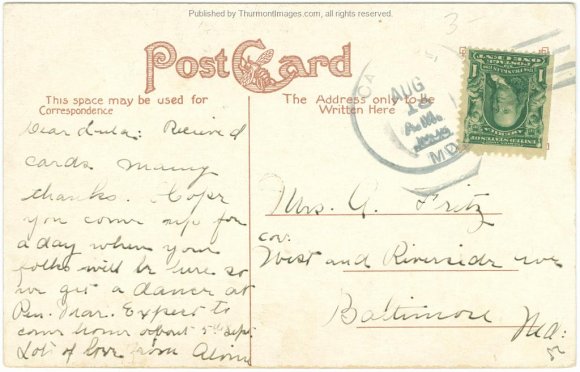 Published by ThurmontImages.com, all rights reserved.
3-
Post Card
This space may be used for
Correspondence
The Address only to be
Written Here
AUG
A.M.
MD
ONE CENT
1 1
Dear Lula: Received
cards many
thanks. Hope
you come up for
a day when your
folks will be here so
we get a dance at
Pen. Mar. Expect to
come home about 5th Sept.
Lots of love from
Mrs. G. Fritz
cor:
West and Riverside ave
Baltimore
Md: